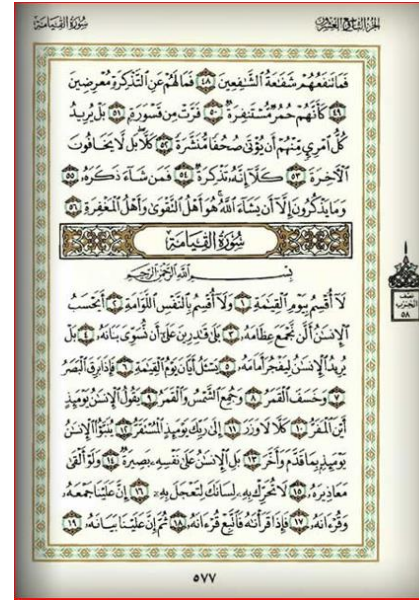 سُورَةُ القِيَامَةِ الجُزْءُ التَّاسِعُ وَالعِشْرُونَ
فَمَا تَنفَعُهُمْ شَفَٰعَةُ ٱلشَّٰفِعِينَ ٤٨ فَمَا لَهُمْ عَنِ ٱلتَّذْكِرَةِ مُعْرِضِينَ
٤٩ كَأَنَّهُمْ حُمُرٌ مُّسْتَنفِرَةٌ ٥٠ فَرَّتْ مِن قَسْوَرَةٍ ٥١ بَلْ يُرِيدُ
كُلُّ ٱمْرِئٍ مِّنْهُمْ أَن يُؤْتَىٰ صُحُفًا مُّنَشَّرَةً ٥٢ كَلَّا بَل لَّا يَخَافُونَ
ٱلْءَاخِرَةَ ٥٣ كَلَّا إِنَّهُۥ تَذْكِرَةٌ ٥٤ فَمَن شَآءَ ذَكَرَهُۥ ٥٥
وَمَا يَذْكُرُونَ إِلَّآ أَن يَشَآءَ ٱللَّهُ هُوَ أَهْلُ ٱلتَّقْوَىٰ وَأَهْلُ ٱلْمَغْفِرَةِ ٥٦
سُورَةُ القِيَامَةِ
بِسْمِ ٱللَّهِ ٱلرَّحْمَٰنِ ٱلرَّحِيمِ
لَآ أُقْسِمُ بِيَوْمِ ٱلْقِيَٰمَةِ ١ وَلَآ أُقْسِمُ بِٱلنَّفْسِ ٱللَّوَّامَةِ ٢ أَيَحْسَبُ
ٱلْإِنسَٰنُ أَلَّن نَّجْمَعَ عِظَامَهُۥ ٣ بَلَىٰ قَٰدِرِينَ عَلَىٰٓ أَن نُّسَوِّىَ بَنَانَهُۥ ٤ بَلْ
يُرِيدُ ٱلْإِنسَٰنُ لِيَفْجُرَ أَمَامَهُۥ ٥ يَسْـَٔلُ أَيَّانَ يَوْمُ ٱلْقِيَٰمَةِ ٦ فَإِذَا بَرِقَ ٱلْبَصَرُ
٧ وَخَسَفَ ٱلْقَمَرُ ٨ وَجُمِعَ ٱلشَّمْسُ وَٱلْقَمَرُ ٩ يَقُولُ ٱلْإِنسَٰنُ يَوْمَئِذٍ
أَيْنَ ٱلْمَفَرُّ ١٠ كَلَّا لَا وَزَرَ ١١ إِلَىٰ رَبِّكَ يَوْمَئِذٍ ٱلْمُسْتَقَرُّ ١٢ يُنَبَّؤُا۟ ٱلْإِنسَٰنُ
يَوْمَئِذٍۭ بِمَا قَدَّمَ وَأَخَّرَ ١٣ بَلِ ٱلْإِنسَٰنُ عَلَىٰ نَفْسِهِۦ بَصِيرَةٌ ١٤ وَلَوْ أَلْقَىٰ
مَعَاذِيرَهُۥ ١٥ لَا تُحَرِّكْ بِهِۦ لِسَانَكَ لِتَعْجَلَ بِهِۦٓ ١٦ إِنَّ عَلَيْنَا جَمْعَهُۥ
وَقُرْءَانَهُۥ ١٧ فَإِذَا قَرَأْنَٰهُ فَٱتَّبِعْ قُرْءَانَهُۥ ١٨ ثُمَّ إِنَّ عَلَيْنَا بَيَانَهُۥ ١٩
نصف
الحزب
٥٨
٥٧٧